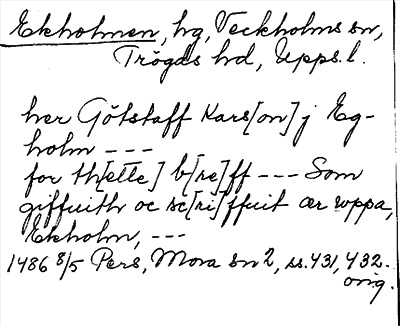 Ekholmen, hg, Veckholms sn,
Trögds hd, Upps.l.
her Götstaff Kars[on] j Eg-
holm ---
for th[ette] b[re]ff --- Som
giffuith oc sc[ri]ffuit ær uppa,
Ekholm, ---
1486 8/5 Pers, Mora sn 2, ss. 431, 432.
orig.